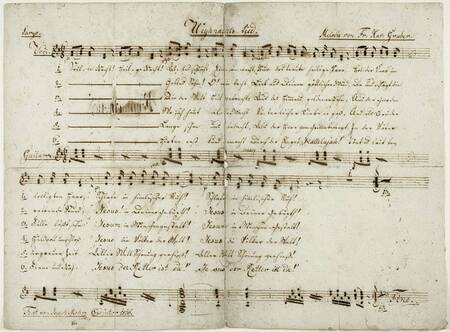 Weyhnachts-Lied.
Melodie von Fr. Xav. Gruber.
Stille Nacht! Heil'ge Nacht! Alles schläft. Eines wacht. Nur das traute heilige Paar. Holder Knab' im
Gottes Sohn! O! wie lacht Lieb' aus Deinem göttlichen Mund, Da uns schlägt die
Die der Welt Heil gebracht, Aus des Himmels goldenen Höh'n, Aus der Gnaden
Wo sich heut alle Macht Väterlicher Liebe ergoß, Und als Bruder
Lange schon uns bedacht, Als der Herr vom Grimme befreyt, In der Väter
Hirten erst kund gemacht Durch der Engel Halleluja! Tönt es laut bey
Guitarre
lockigten Haar; Schlafe in himmlischer Ruh! Schlafe in himmlischer Ruh!
2. rettende Stund'. Jesus in Deiner Geburt! Jesus in Deiner Geburt!
3. Fülle läßt seh'n Jesum in Menschengestalt! Jesum in Menschengestalt!
4. Huldvoll umschloß Jesus die Völker der Welt! Jesus die Völker der Welt!
5. urgrauer Zeit Aller Welt Schonung verhieß! Aller Welt Schonung verhieß!
6. Ferne und Nah: Jesus der Retter ist da! Jesus der Retter ist da!
Fine.
Text von Joseph Mohr Coadjutor 1816.